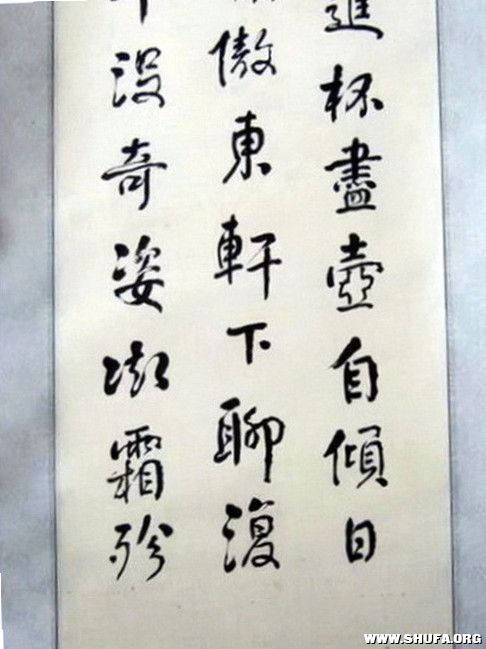 進杯盡壺自傾日
傲東軒下聊復
沒奇姿凝霜殄
WWW.SHUFA.ORG